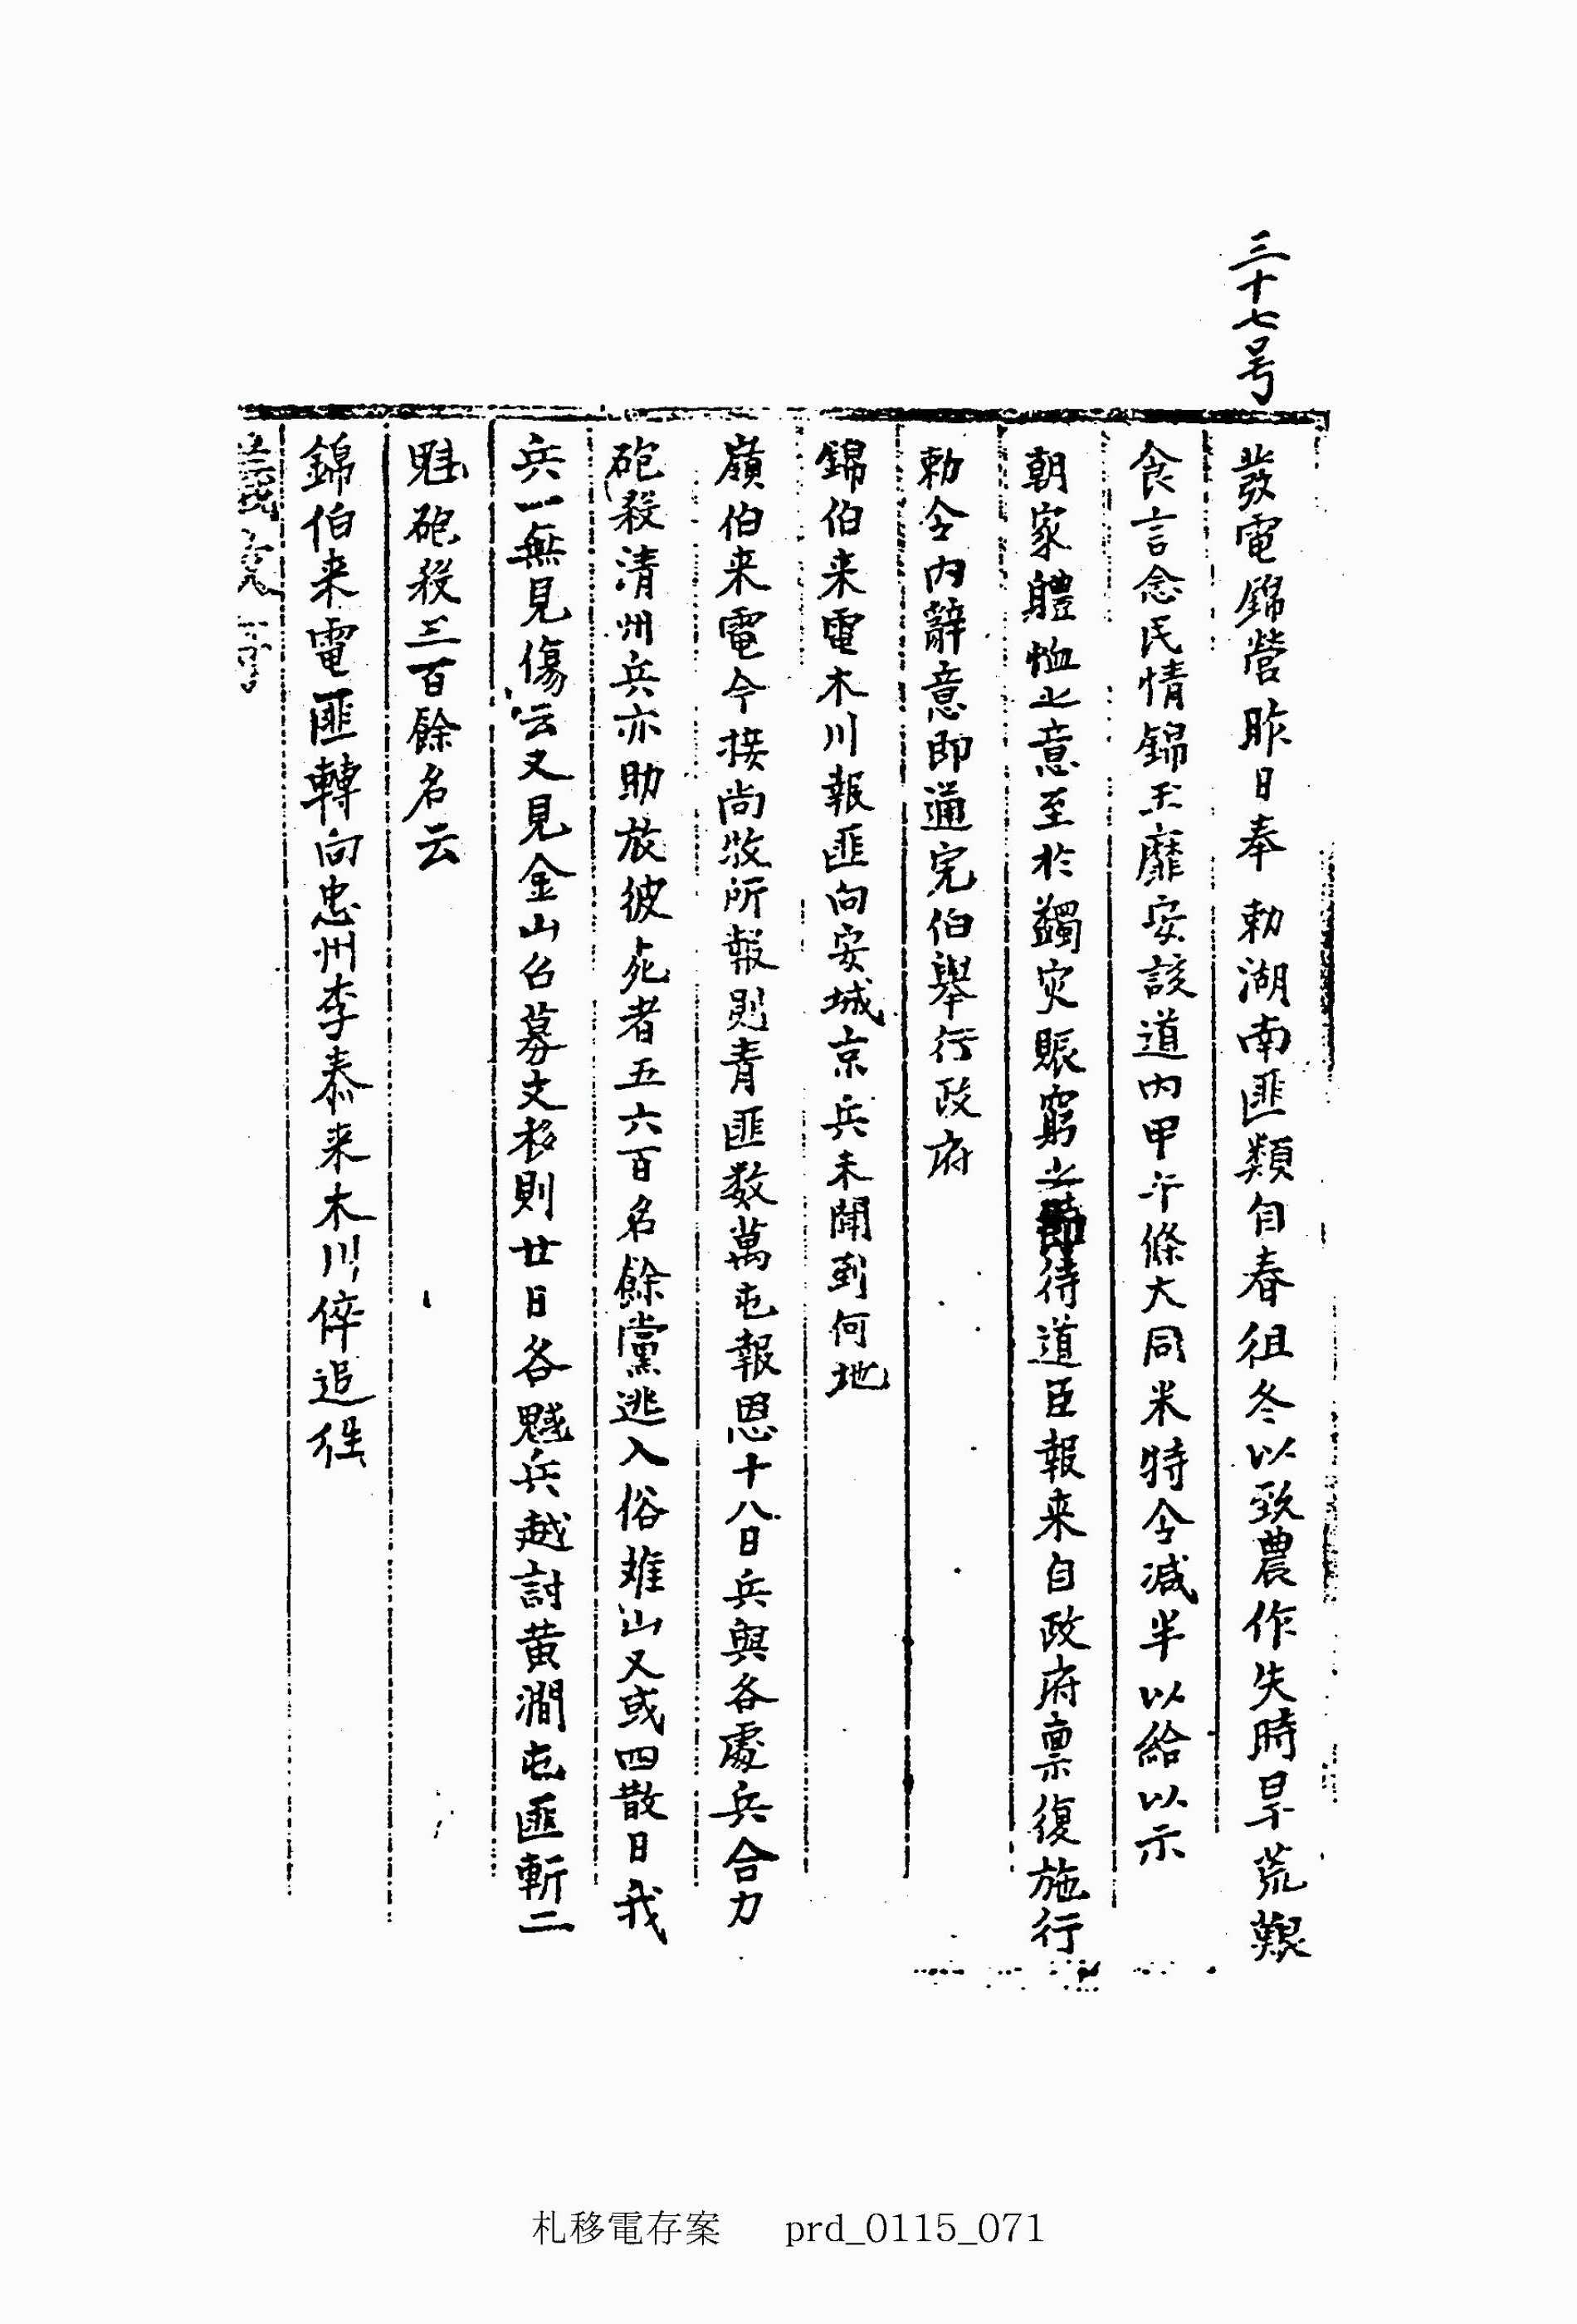 三十七号
發電錦營昨日奉 勅湖南匪類自春徂冬以致農作失時旱荒艱
食言念民情錦玉靡安該道內甲午條大同米特令減半以給以示
朝家軆恤之意至於蠲灾賑窮之節待道臣報来自政府稟復施行
勅令內辭意即通完伯舉行政府
錦伯来電木川報匪向安城京兵未聞到何地
嶺伯来電今接尚牧所報則青匪数萬屯報恩十八日兵與各處兵合力
砲殺清州兵亦助放彼死者五六百名餘黨逃入俗離山又或四散日我
兵一無見傷云又見金山召募文移則廿日各魁兵越討黄澗屯匪斬二
魁砲殺三百餘名云
錦伯来電匪轉向忠州李泰来木川倅追往
札移電存案 prd_0115_071